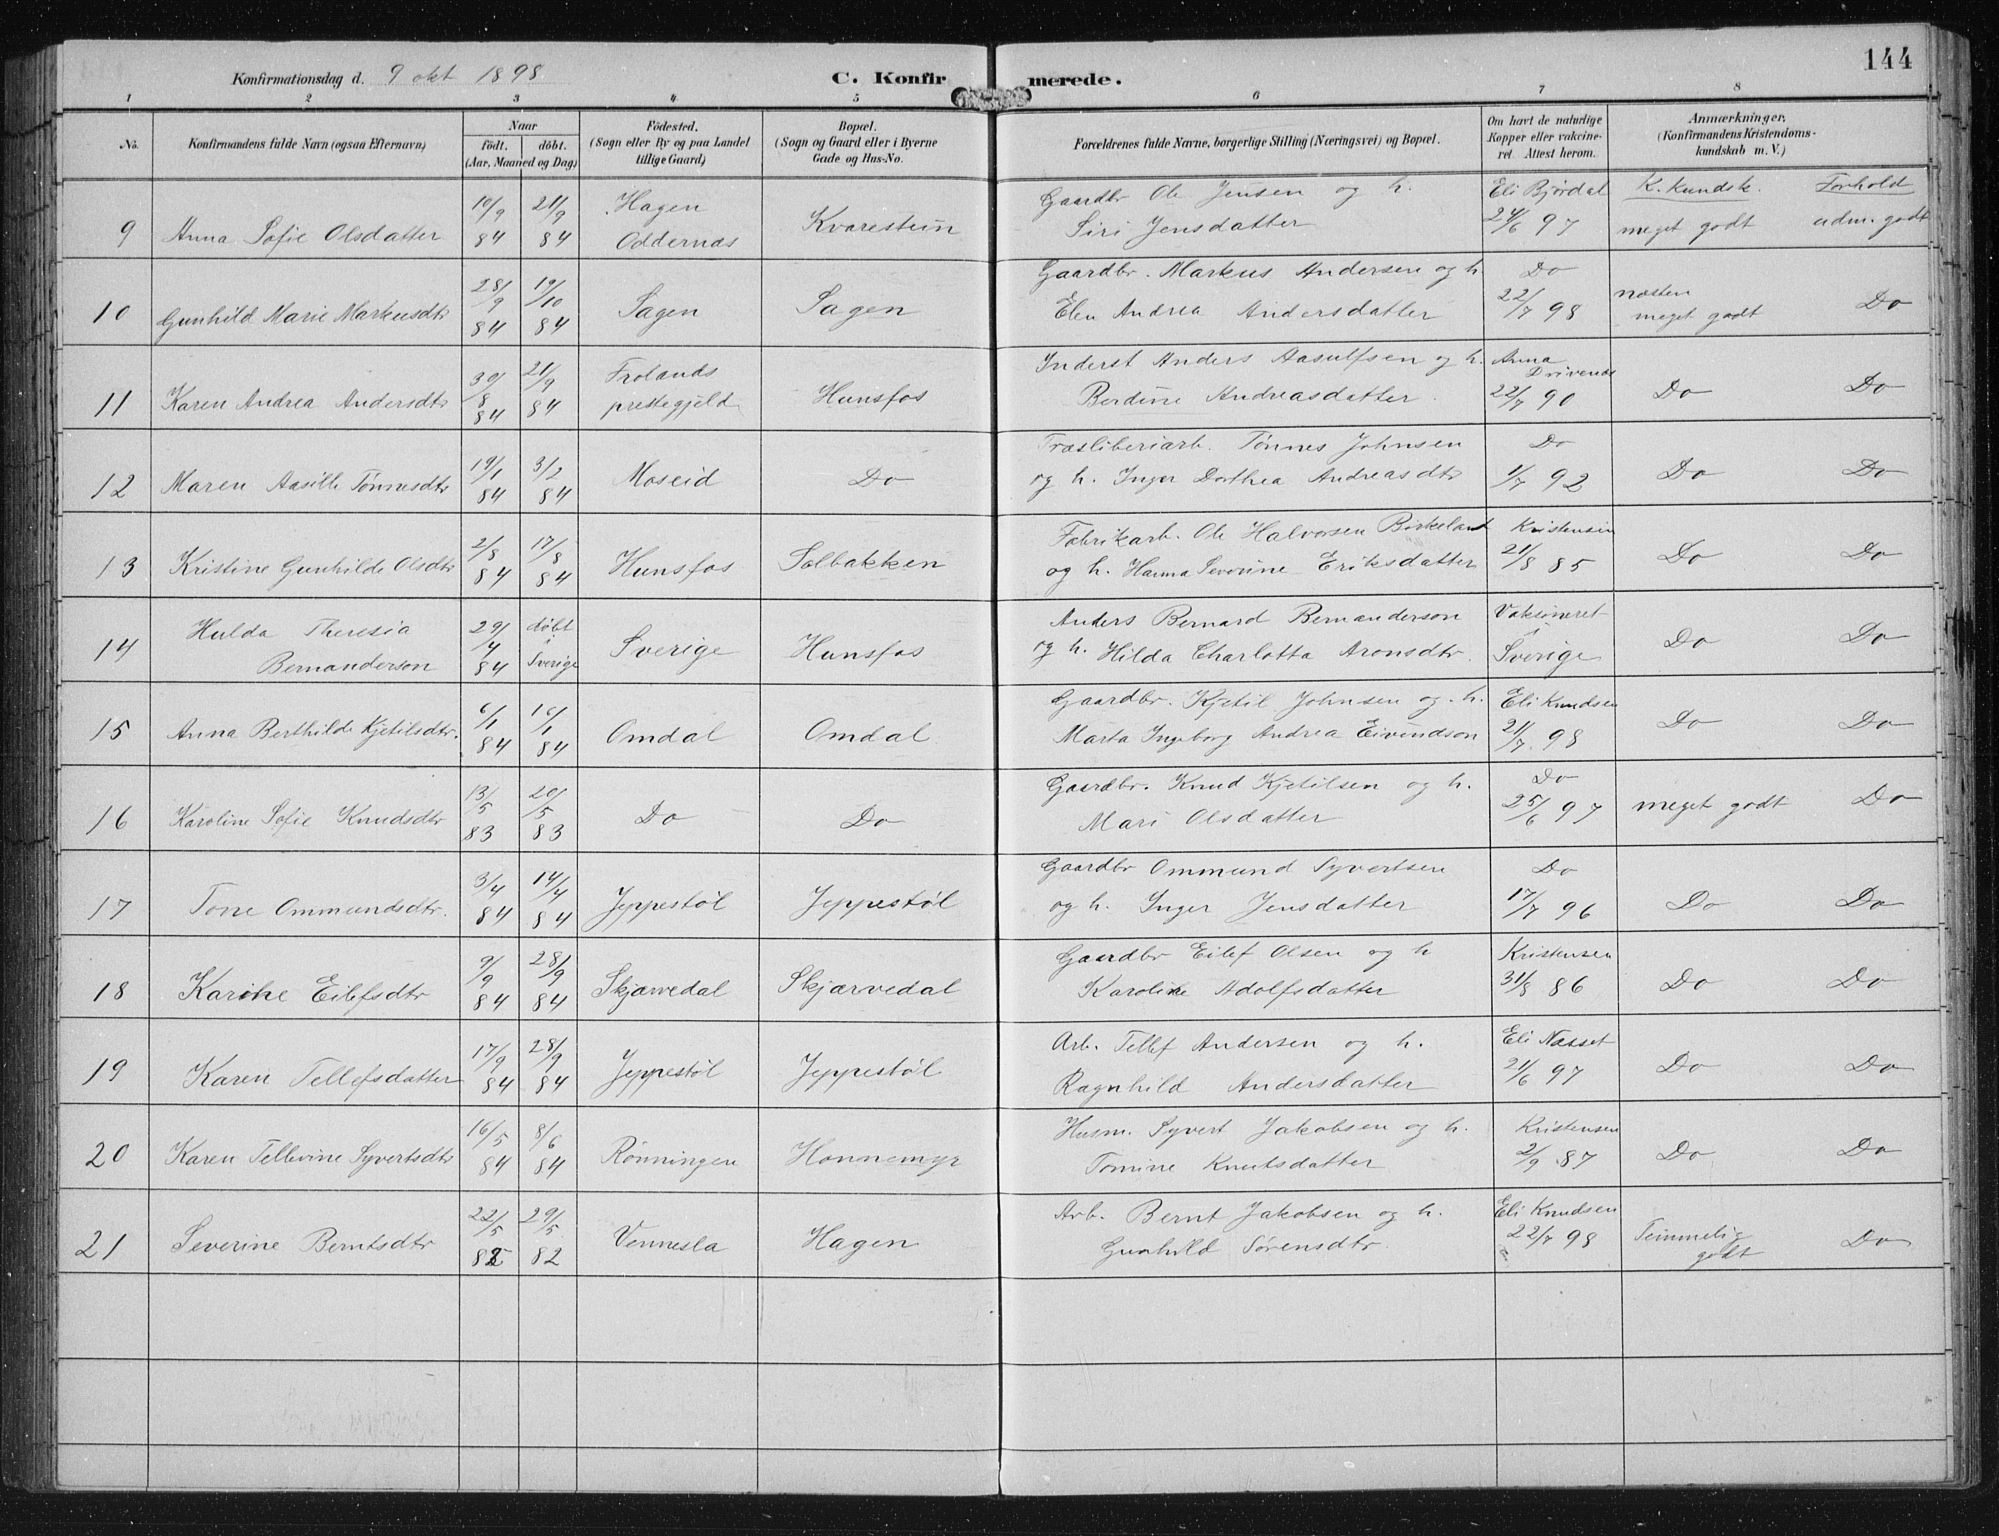 144
Konfirmationsdag d. 9 okt 1898 C. Konfirmerede.
1 2 3 4 5 6 7 8
No. Konfirmandens fulde Navn (ogsaa Efternavn). Naar födt. döbt. (Aar, Maaned og Dag) Födested. (Sogn eller By og paa Landet tillige Gaard) Bopæl. (Sogn og Gaard eller i Byerne Gade og Hus-No. Forældrenes fulde Navne, borgerlige Stilling (Næringsvei) og Bopæl. Om havt de naturlige Kopper eller vakcineret. Attest herom. Anmærkninger. (Konfirmandens Kristendomskundskab m. V.)
9 Anna Sofie Olsdatter 10/9 84 21/9 84 Hagen Oddernæs Kvarestein Gaardbr Ole Jensen og h. Siri Jensdatter Eli Bjørdal 24/6 97 K. kundsk. meget godt Forhold udm. godt
10 Gunhild Marie Markusdtr 28/9 84 19/10 84 Sagen Sagen Gaardbr. Markus Andersen og h. Elen Andrea Andersdatter Do 22/7 98 næsten meget godt Do
11 Karen Andrea Andersdtr 30/8 84 21/9 84 Frolands prestegjeld Hunsfos Inderst Anders Aasulfsen og h. Berdine Andreasdatter Anna Drivenes 22/7 90 Do Do
12 Maren Aasille Tønnesdtr 19/1 84 3/2 84 Moseid Do Træsliberiarb. Tønnes Johnsen og h. Inger Dorthea Andreasdtr Do 1/7 92 Do Do
13 Kristine Gunhilde Olsdtr 2/8 84 17/8 84 Hunsfos Solbakken Fabrikarb. Ole Halvorsen Birkeland og h. Hanna Severine Eriksdatter Kristensen 21/8 85 Do Do
14 Hulda Theresia Bernanderson 29/4 84 døbt i Sverige Sverige Hunsfos Anders Bernard Bernanderson og h. Hilda Charlotta Aronsdtr. Vaksineret i Sverige Do Do
15 Anna Berthilde Kjetilsdtr. 6/1 84 16/1 84 Omdal Omdal Gaardbr. Kjetil Johnsen og h. Marta Ingeborg Andrea Eivindson Eli Knudsen 21/7 98 Do Do
16 Karoline Sofie Knudsdtr 13/5 83 20/5 83 Do Do Gaardbr. Knud Kjetilsen og h. Mari Olsdatter Do 25/6 97 meget godt Do
17 Tone Ommundsdtr. 3/4 84 14/4 84 Jeppestøl Jeppestøl Gaardbr Ommund Syvertsen og h. Inger Jensdatter Do 17/7 96 Do Do
18 Karine Eilefsdtr 9/9 84 28/9 84 Skjævedal Skjærvedal Gaardbr Eilef Olsen og h Karoline Adolfsdatter Kristensen 31/8 86 Do Do
19 Karen Tellefsdatter 17/9 84 28/9 84 Jeppestøl Jeppestøl Arb. Tellef Andersen og h. Ragnhild Andersdatter Eli Næsset 21/6 97 Do Do
20 Karen Tellevine Syvertsdtr 16/5 84 8/6 84 Rønningen Honnemyr Husm. Syvert Jakobsen og h. Tomine Knutsdatter Kristensen 2/9 87 Do Do
21 Severine Berntsdtr 22/5 82 29/5 82 Vennesla Hagen Arb. Bernt Jakobsen og h. Gunhild Sørensdtr. Eli Knudsen 22/7 98 Temmelig godt Do